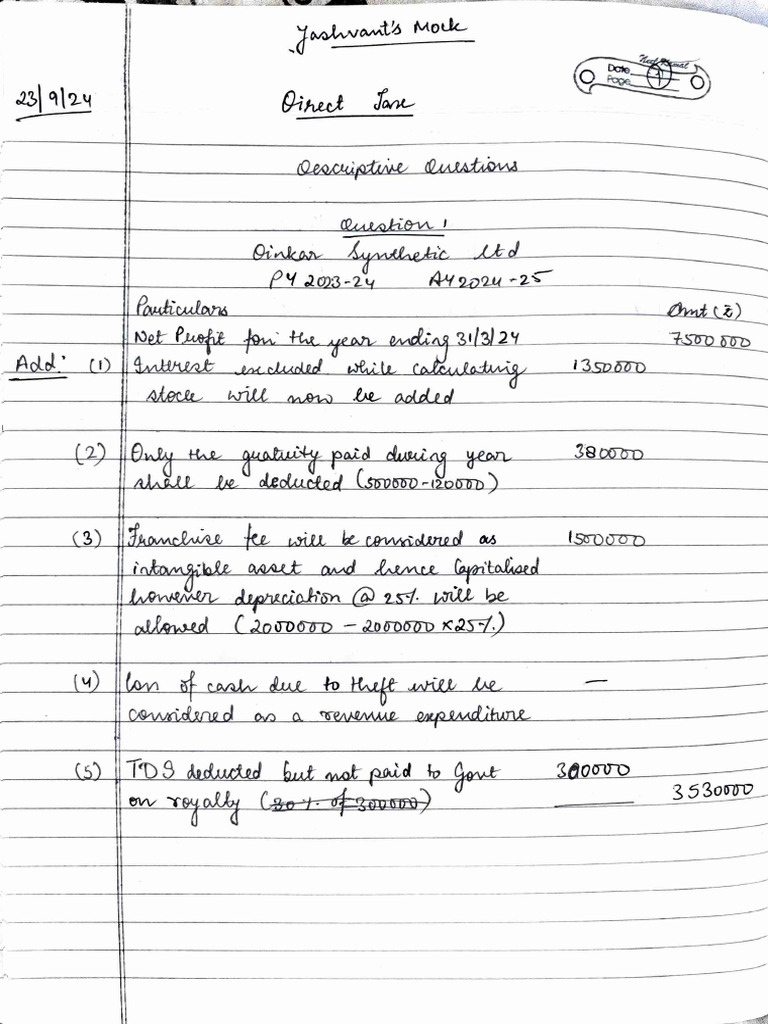 Yashvant's Mock
Date
Page 1
23/9/24
Direct Tax
Descriptive Questions
Question 1
Oinkar Synthetic ltd
PY 2023-24 AY 2024-25
Particulars Amt (₹)
Net Profit for the year ending 31/3/24 7500000
Add: (1) Interest excluded while calculating 1350000
stock will now be added
(2) Only the gratuity paid during year 380000
shall be deducted (500000-120000)
(3) Franchise fee will be considered as 1500000
intangible asset and hence Capitalised
however depreciation @ 25% will be
allowed (2000000 - 2000000 x 25%)
(4) loss of cash due to theft will be —
considered as a revenue expenditure
(5) TDS deducted but not paid to Govt 300000
on royalty (30% of 300000) 3530000